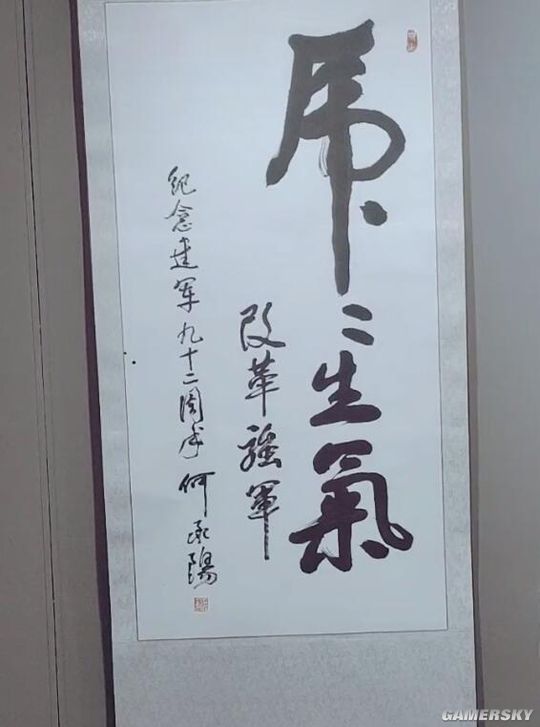 虎〻生氣
改革強軍
紀念建军九十二周年 何承陽
GAMERSKY